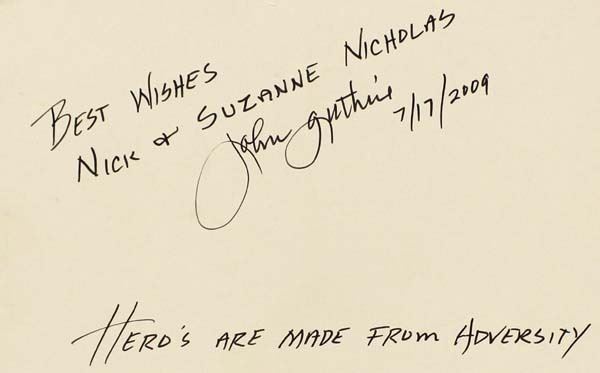 BEST WISHES
NICK & SUZANNE NICHOLAS
John Guthrie 7/17/2009
HERO'S ARE MADE FROM ADVERSITY